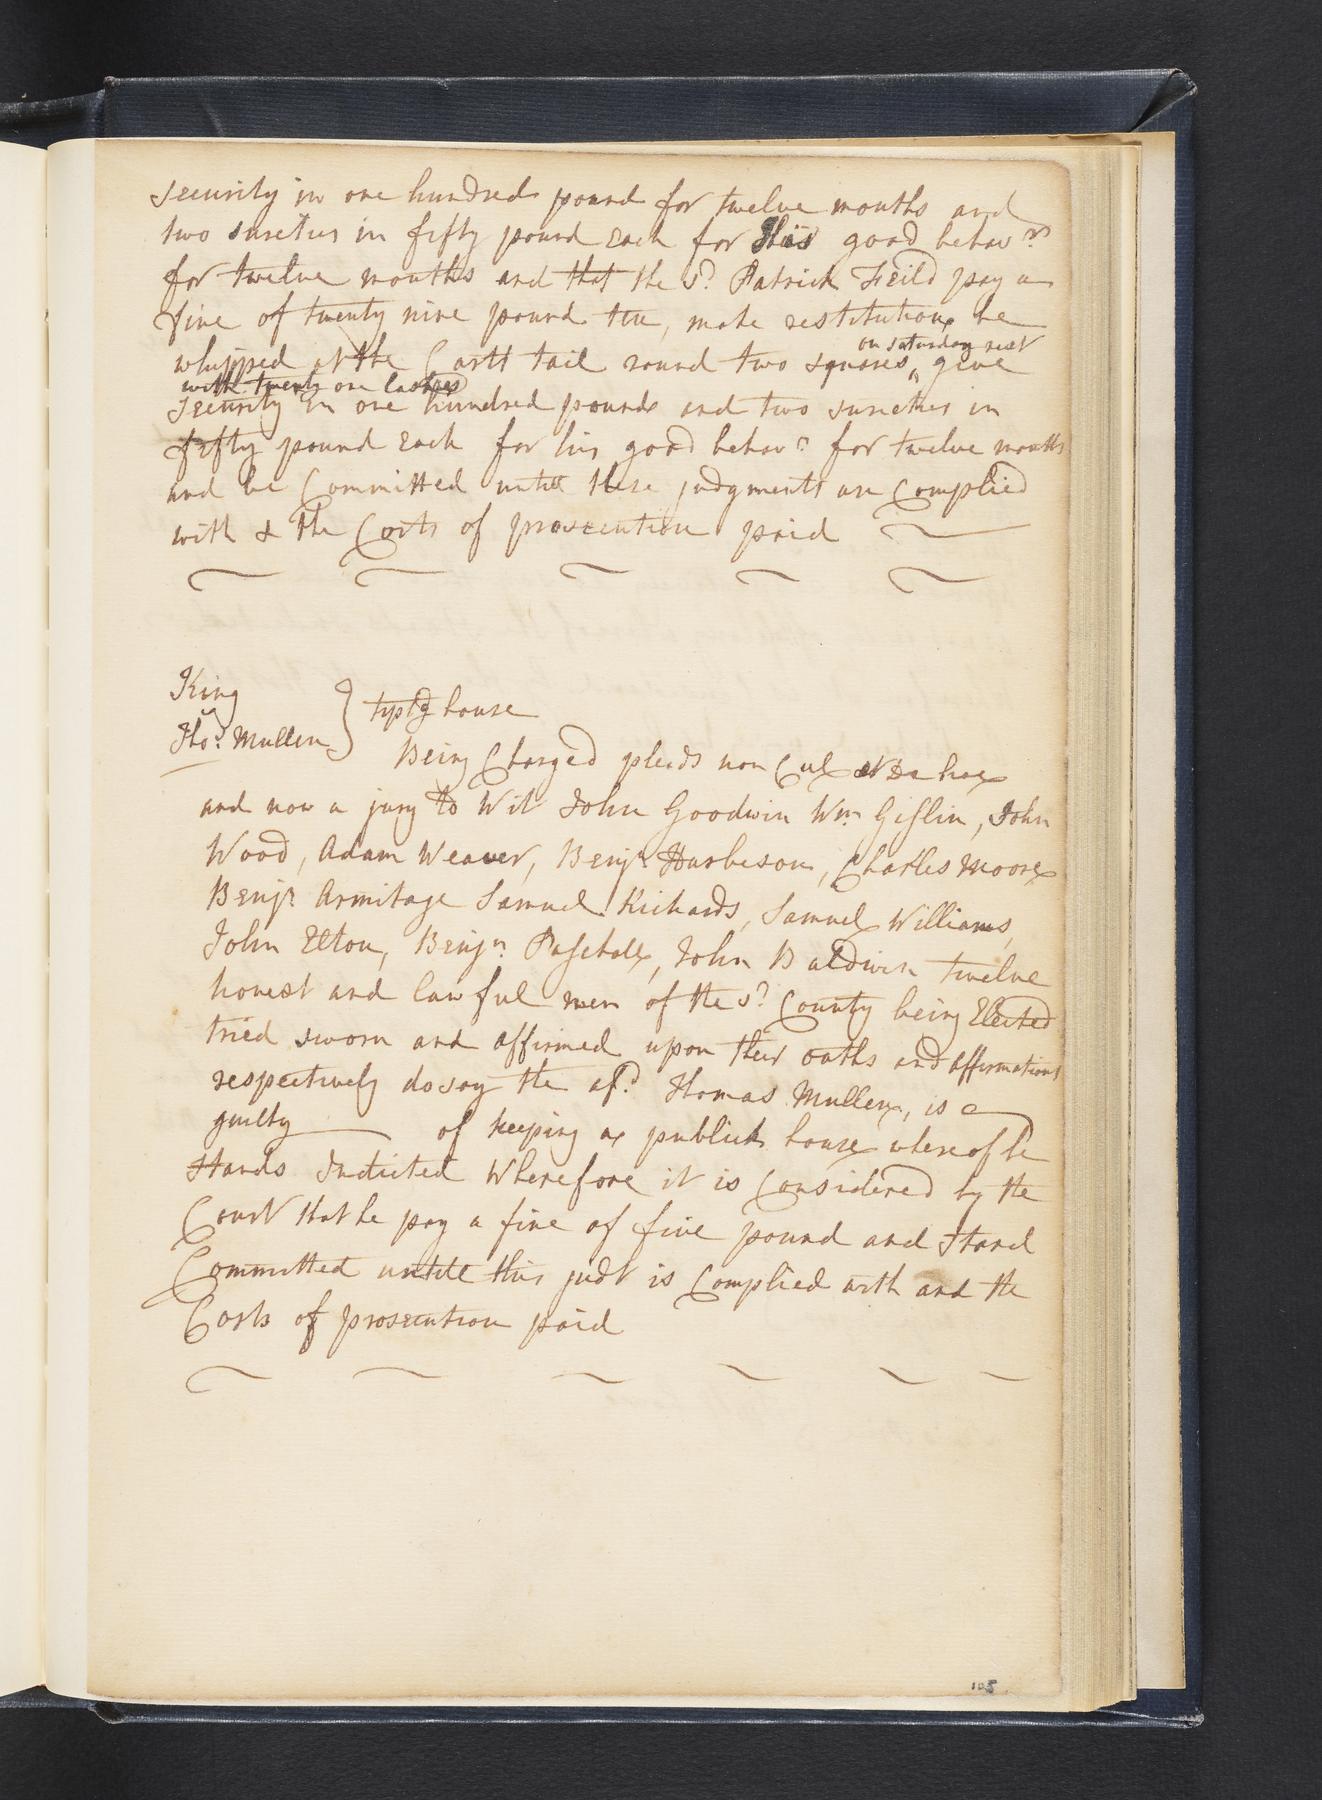 security in one hundred pound for twelve months and
two sureties in fifty pound Each for His good behavr
for twelve months and that the sd Patrick Feild pay a
fine of twenty nine pound ten, make restitution be
on saturday next
whipped at the Cartt tail round two squares, give
with twenty one lashes
security In one hundred pound and two sureties in
fifty pound Each for his good behavr for twelve months
and be Committed untill these judgments are Complied
with & the Costs of prosecution paid
King
v
Thos Mullen } tiplg house
Being Charged pleads non Cul et De hoc
and now a jury to Wit John Goodwin Wm Gislin, John
Wood, Adam Weaver, Benjn Harbeson, Charles Moore
Benjn Armitage Samuel Richards, Samuel Williams,
John Elton, Benjn Paschall, John Baldwin twelve
honest and lawful men of the sd County being Elected
tried sworn and affirmed upon their oaths and affirmations
respectively do say the afd Thomas Mullen, is
guilty of keeping a publick house whereof he
Stands Indicted Wherefore it is Considered by the
Court that he pay a fine of five pound and Stand
Committed untill this judt is Complied with and the
Costs of prosecution paid
105